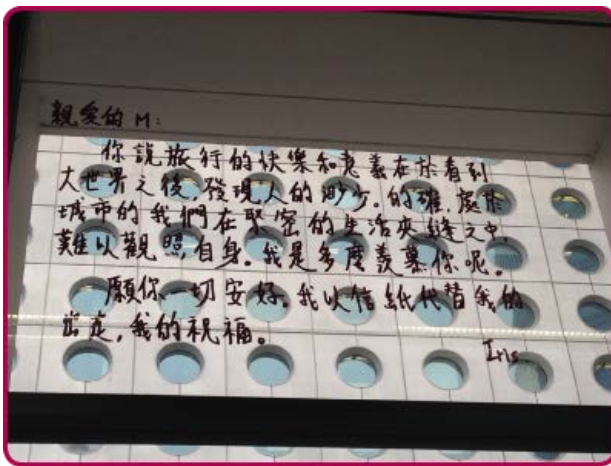 親愛的 M:
你說旅行的快樂和意義在於看到
大世界之後,發現人的渺少。的確,處於
城市的我們在緊密的生活夾縫之中,
難以觀照自身。我是多麼羨慕你呢。
願你一切安好。我以信紙代替我的
出走,我的祝福。
Iris